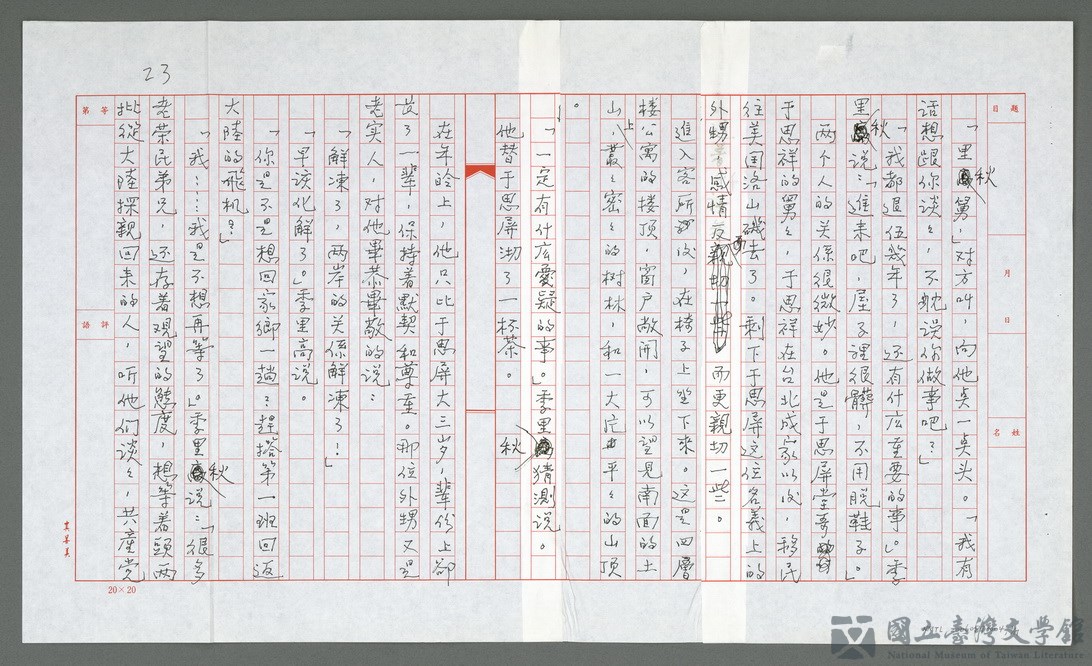 23
題 目
月 日
姓 名
「里秋舅，」对方叫，向他点一点头。「我有
話想跟你谈々，不耽误你做事吧？」
「我都退伍幾年了，还有什広重要的事。」季
里秋说：「進来吧，屋子裡很髒，不用脱鞋子。」
两个人的关係很微妙。他是于思屏堂哥
于思祥的舅々，于思祥在台北成家以後，移民
往美国洛山磯去了。剩下于思屏这位名義上的
外甥感情反而更親切一些。
進入客所以後，在椅子上坐下来。这是四層
楼公寓的楼顶，窗户敞開，可以望見南面的土
山上叢々密々的树林，和一大片平々的山頂
。
「一定有什広爱疑的事。」季里秋猜測说。
他替于思屏沏了一杯茶。
在年龄上，他只比于思屏大三岁，輩份上卻
長了一輩，保持着默契和尊重。那位外甥又是
老实人，对他畢恭畢敬的说：
「解凍了，两岸的关係解凍了！」
「早该化解了。」季里高说。
「你是不是想回家鄉一趟？趕搭第一班回返
大陸的飛机？」
「我……我是不想再等了。」季里秋说：「很多
老荣民弟兄，还存着观望的態度，想等着頭两
批從大陸探親回来的人，听他们谈々，共產党
第 等
評 語
20×20
國立臺灣文學館
National Museum of Taiwan Literature